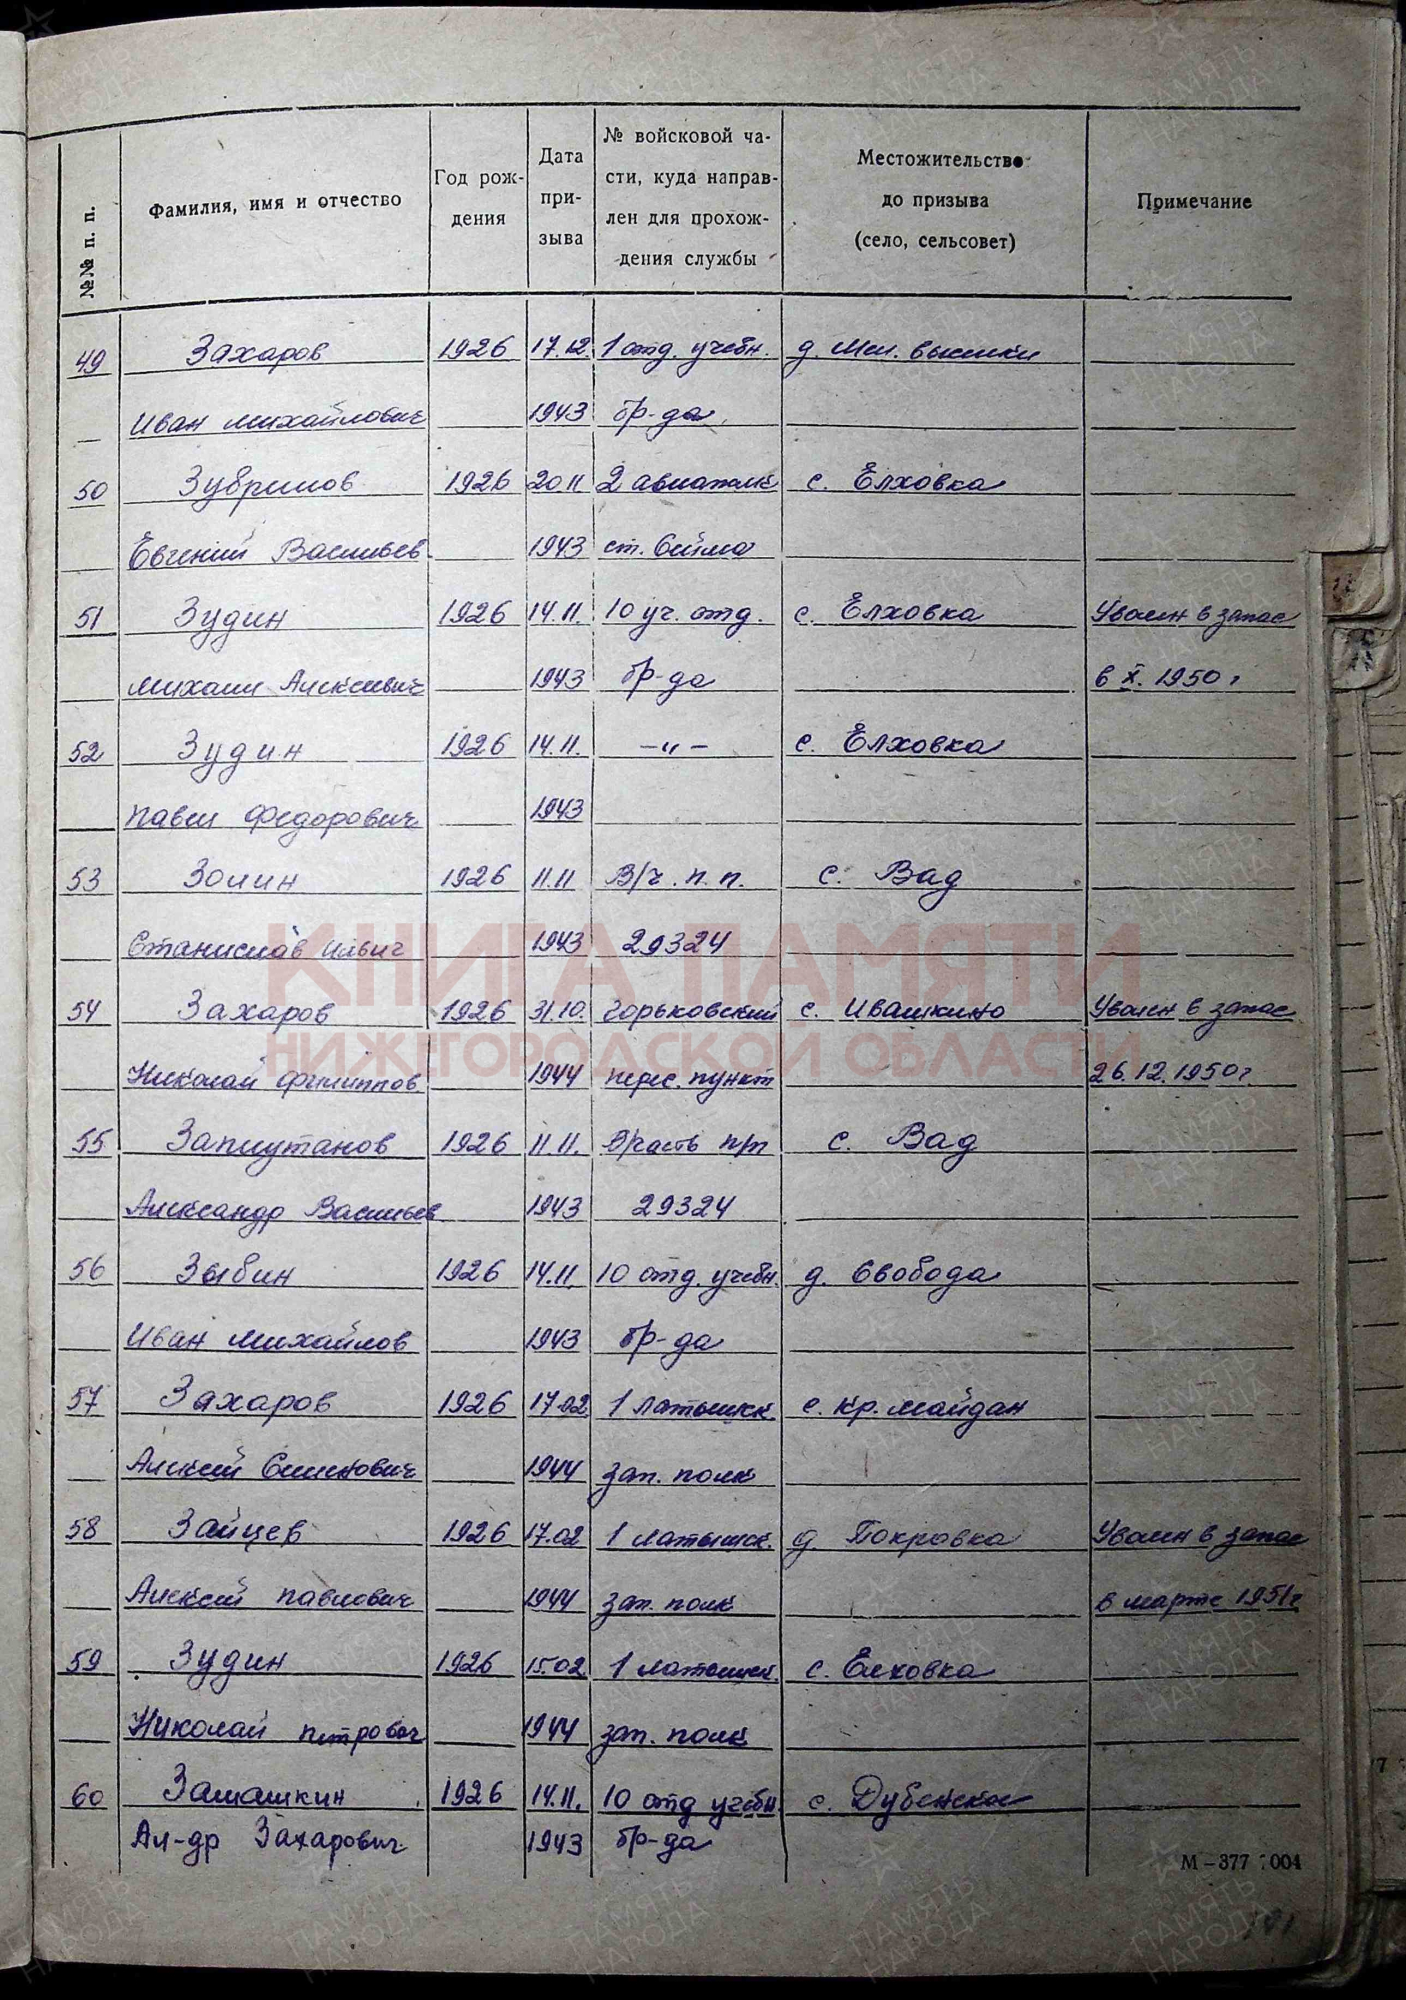 №№ п. п.
Фамилия, имя и отчество
Год рож-
дения
Дата
при-
зыва
№ войсковой ча-
сти, куда направ-
лен для прохож-
дения службы
Местожительство
до призыва
(село, сельсовет)
Примечание
49 Захаров 1926 17.12. 1 отд. учебн. д.
Иван Михайлович 1943 бр-да
50 Зубрилов 1926 20 11 2 с. Елховка
Евгений Васильев 1943 ст. Сейма
51 Зудин 1926 14.11. 10 уч. отд. с. Елховка Уволен в запас
Михаил Алексеевич 1943 бр-да в X. 1950 г
52 Зудин 1926 14.11. -"- с. Елховка
Павел Федорович 1943
53 Золин 1926 11.11 В/ч. п. п. с. Вад
Станислав Ильич 1943 29324
54 Захаров 1926 31.10. Горьковский с. Ивашкино Уволен в запас
Николай Филиппов 1944 перес. пункт 26.12.1950г.
55 Заплутанов 1926 11.11. В/часть п/п с. Вад
Александр Васильев 1943 29324
56 Зыбин 1926 14.11 10 отд. учебн. д. Свобода
Иван Михайлов 1943 бр-да
57 Захаров 1926 17.02 1 с. Кр. Майдан
Алексей Семенович 1944 зап. полк
58 Зайцев 1926 17.02 1 латышск. д. Покровка Уволен в запас
Алексей Павлович 1944 зап. полк в марте 1951г
59 Зудин 1926 15.02 1 латышск. с. Елховка
Николай Петрович 1944 зап. полк
60 Замашкин 1926 14.11. 10 отд учебн с. Дубенское
Ал-др Захарович 1943 бр-да
М-377 004
КНИГА ПАМЯТИ
НИЖЕГОРОДСКОЙ ОБЛАСТИ
ПАМЯТЬ
НАРОДА